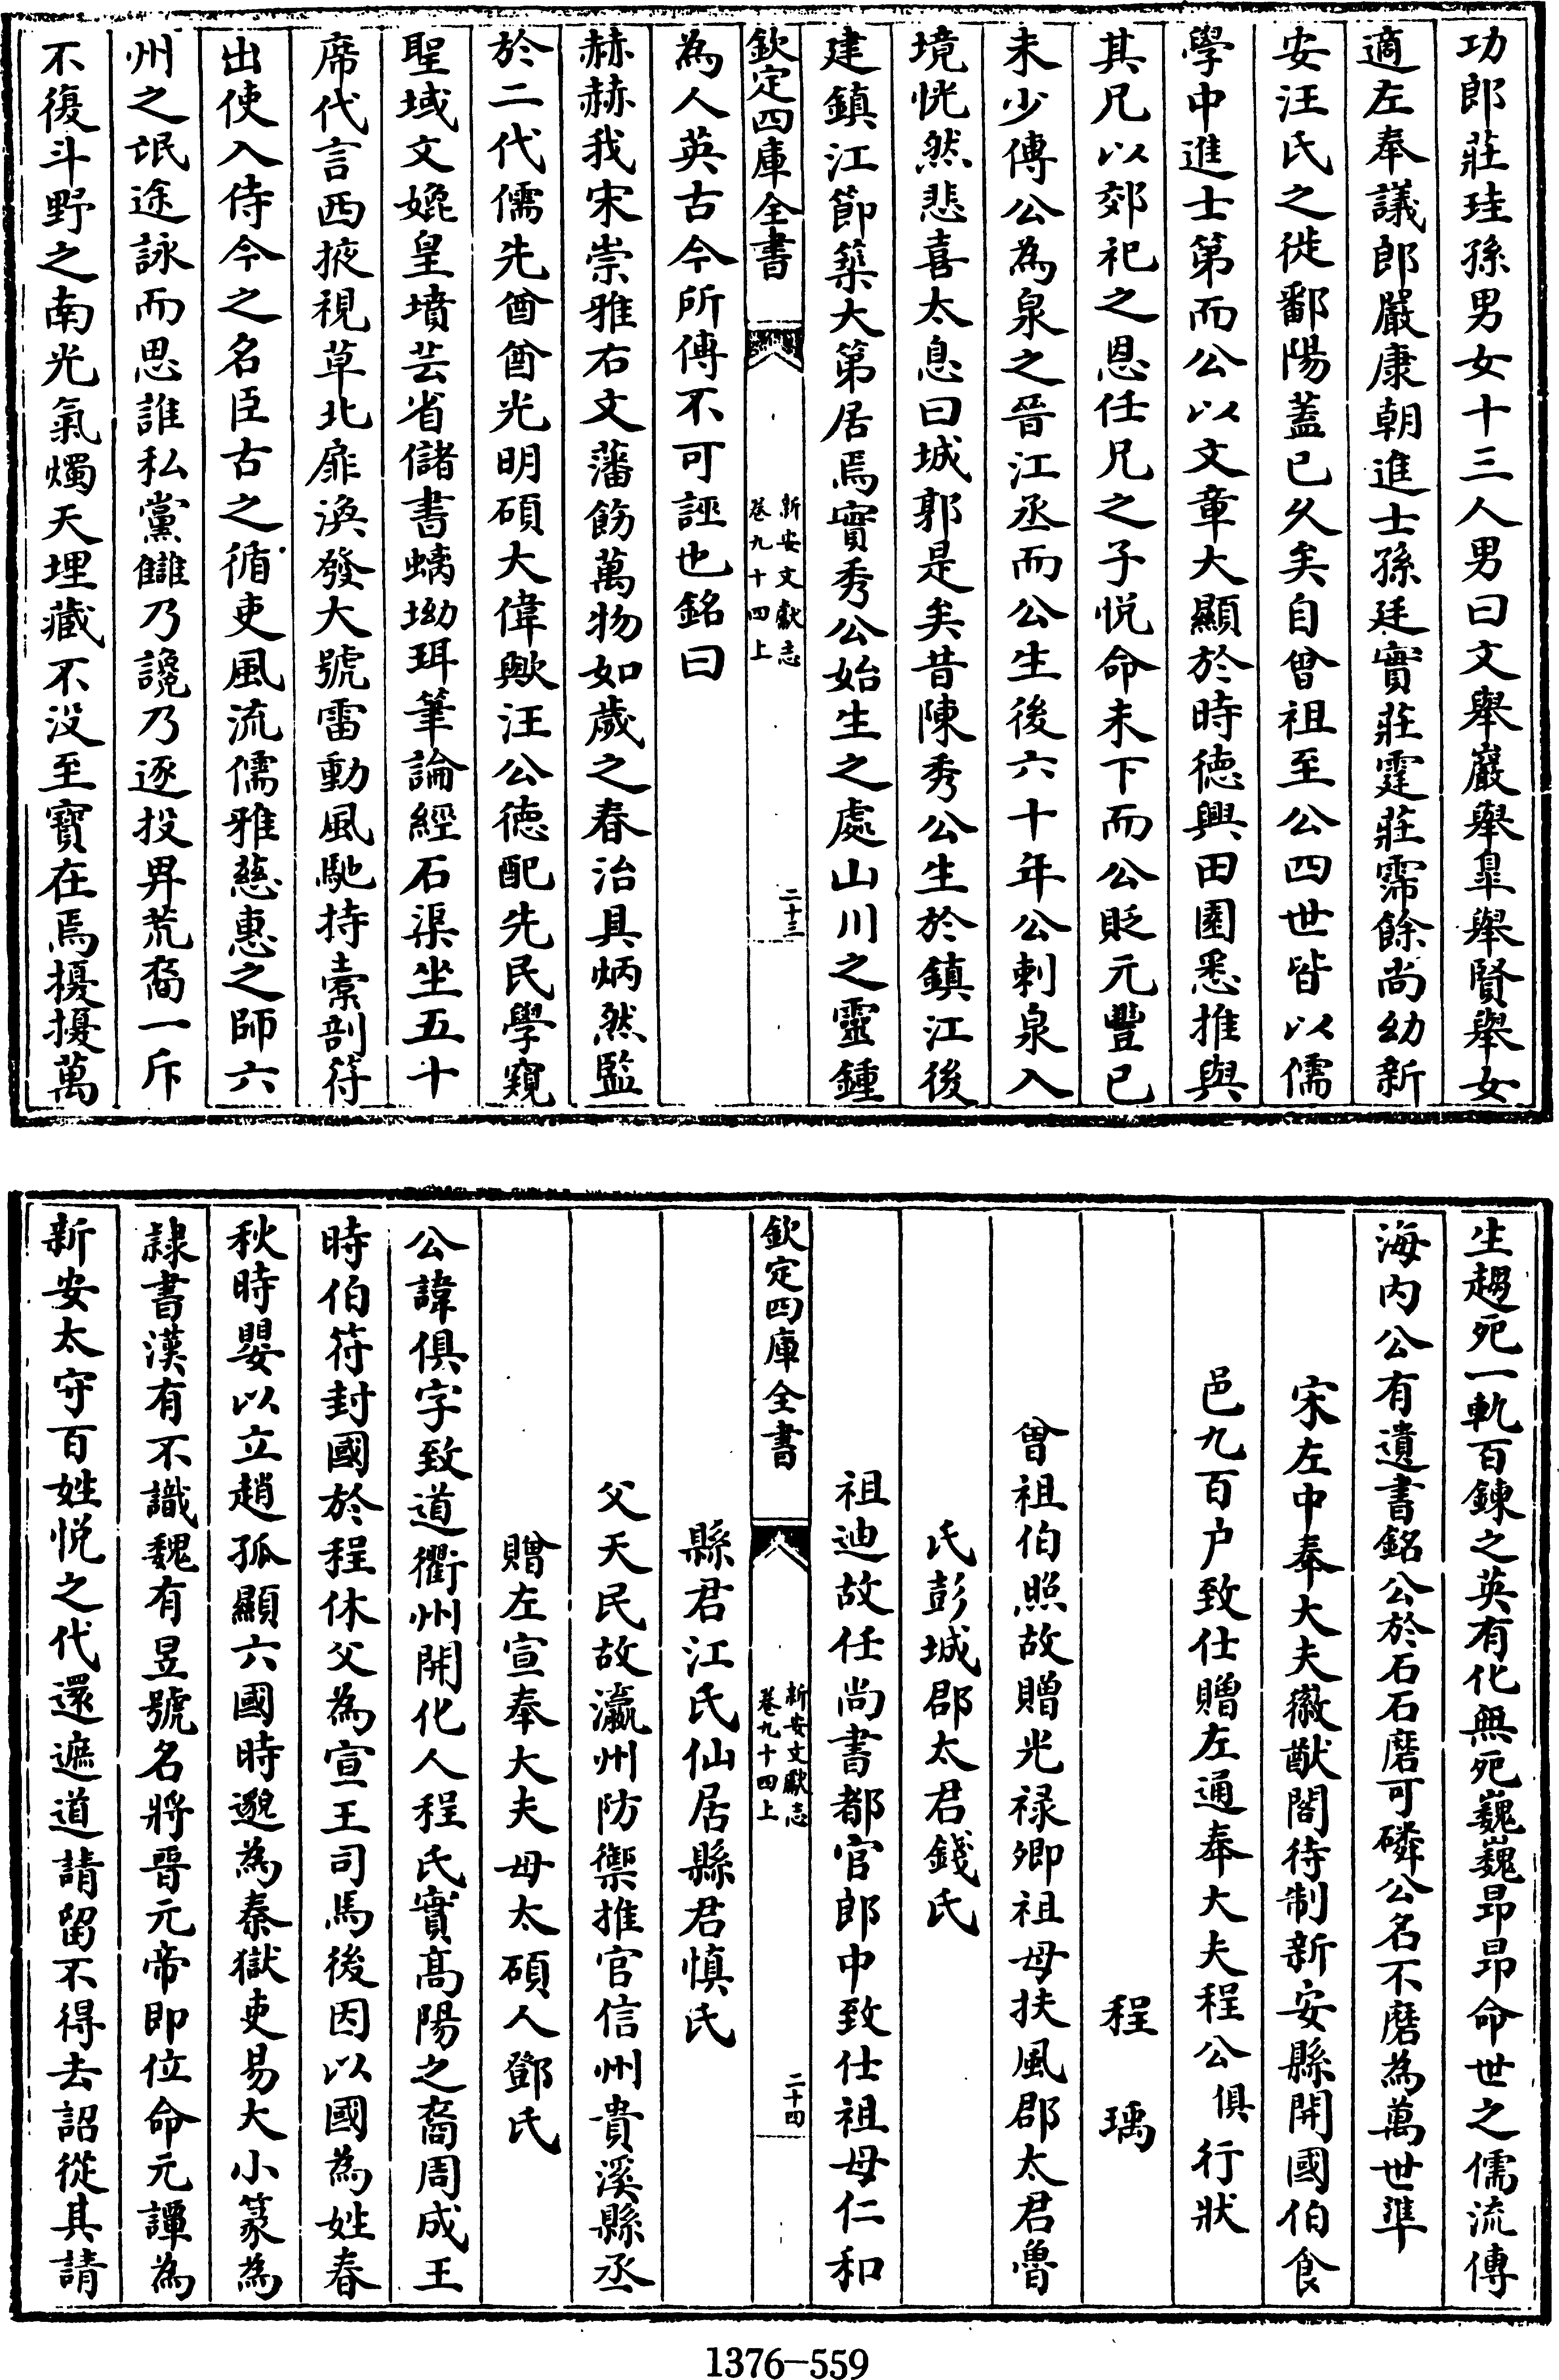 功郎莊珪孫男女十三人男曰文舉巖舉臯舉賢舉女
適左奉議郎嚴康朝進士孫廷實莊霆莊霈餘尚幼新
安汪氏之徙鄱陽蓋已久矣自曾祖至公四世皆以儒
學中進士第而公以文章大顯於時德興田園悉推與
其兄以郊祀之恩任兄之子悅命未下而公貶元豐已
未少傅公為泉之晉江丞而公生後六十年公刺泉入
境恍然悲喜太息曰城郭是矣昔陳秀公生於鎮江後
建鎮江節築大第居焉實秀公始生之處山川之靈鍾
欽定四庫全書
新安文獻志
卷九十四上
二十三
為人英古今所傳不可誣也銘曰
赫赫我宋崇雅右文藩飭萬物如歲之春治具炳然監
於二代儒先酋酋光明碩大偉歟汪公德配先民學窺
聖域文媲皇墳芸省儲書螭坳珥筆論經石渠坐五十
席代言西掖視草北扉渙發大號雷動風馳持橐剖符
出使入侍今之名臣古之循吏風流儒雅慈惠之師六
州之氓途詠而思誰私黨讎乃讒乃逐投畀荒裔一斥
不復斗野之南光氣燭天埋藏不沒至寶在焉擾擾萬
生趨死一軌百鍊之英有化無死巍巍昂昂命世之儒流傳
海内公有遺書銘公於石石磨可磷公名不磨為萬世準
宋左中奉大夫徽猷閣待制新安縣開國伯食
邑九百户致仕贈左通奉大夫程公俱行狀
程瑀
曾祖伯照故贈光禄卿祖母扶風郡太君魯
氏彭城郡太君錢氏
祖迪故任尚書都官郎中致仕祖母仁和
欽定四庫全書
新安文獻志
卷九十四上
二十四
縣君江氏仙居縣君慎氏
父天民故瀛州防禦推官信州貴溪縣丞
贈左宣奉大夫母太碩人鄧氏
公諱俱字致道衢州開化人程氏實高陽之裔周成王
時伯符封國於程休父為宣王司馬後因以國為姓春
秋時嬰以立趙孤顯六國時邈為秦獄吏易大小篆為
隷書漢有不識魏有昱號名將晉元帝即位命元譚為
新安太守百姓悅之代還遮道請留不得去詔從其請
1376—559